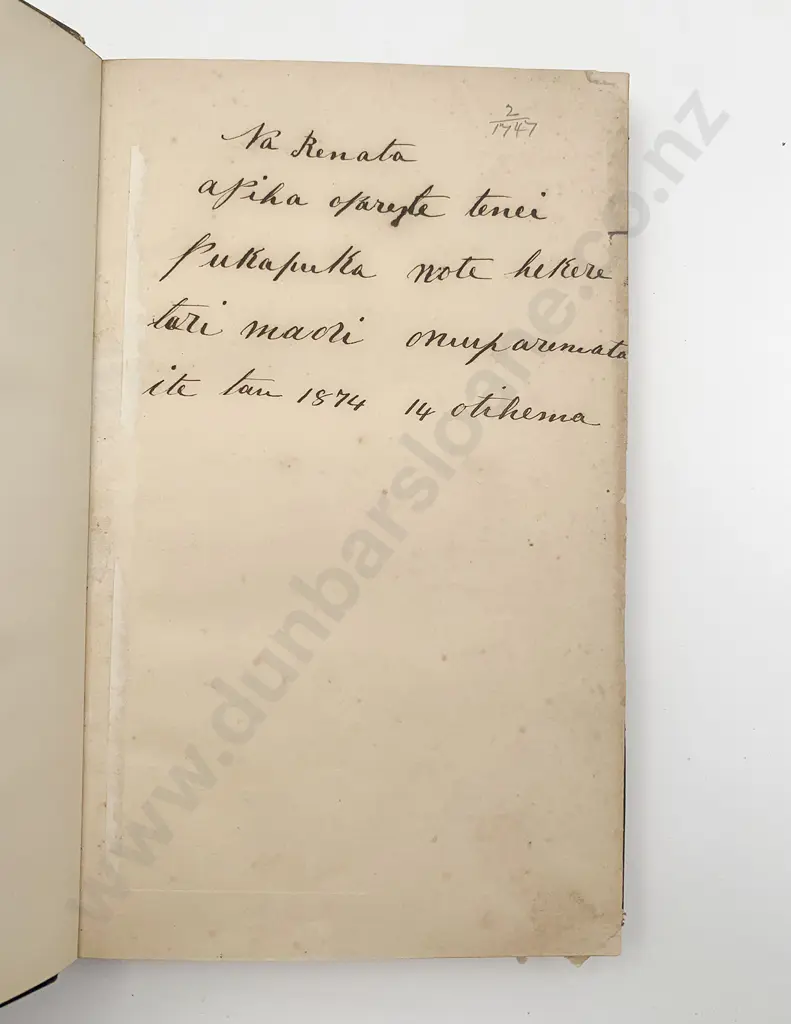 2/1747
Na Renata
apiha opareste tenei
Pukapuka note hekere
tari maori onuiparemata
ite tau 1874 14 otihema
www.dunbarsloane.co.nz